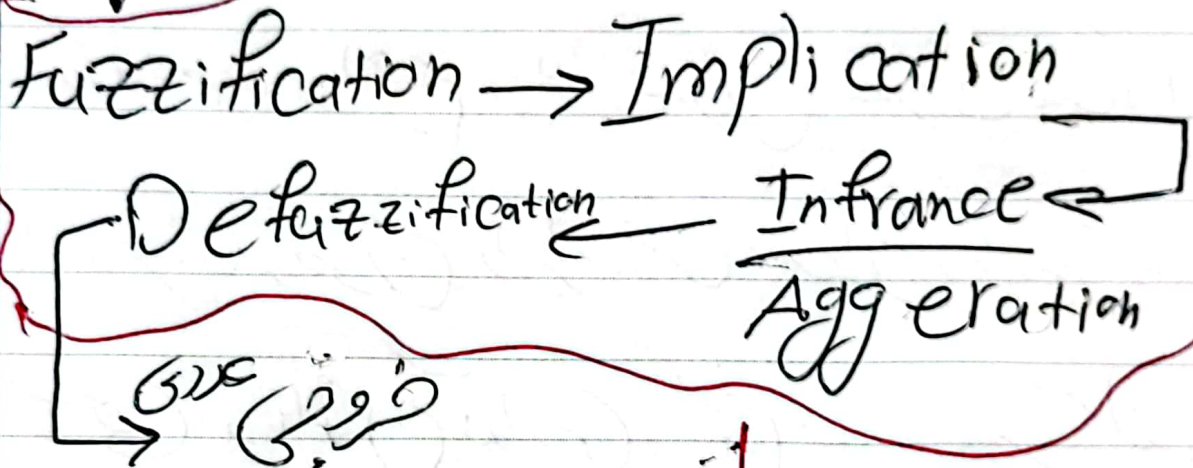 Fuzzification → Implication
Defuzzification ← Infrance
Aggeration
خروجی عددی